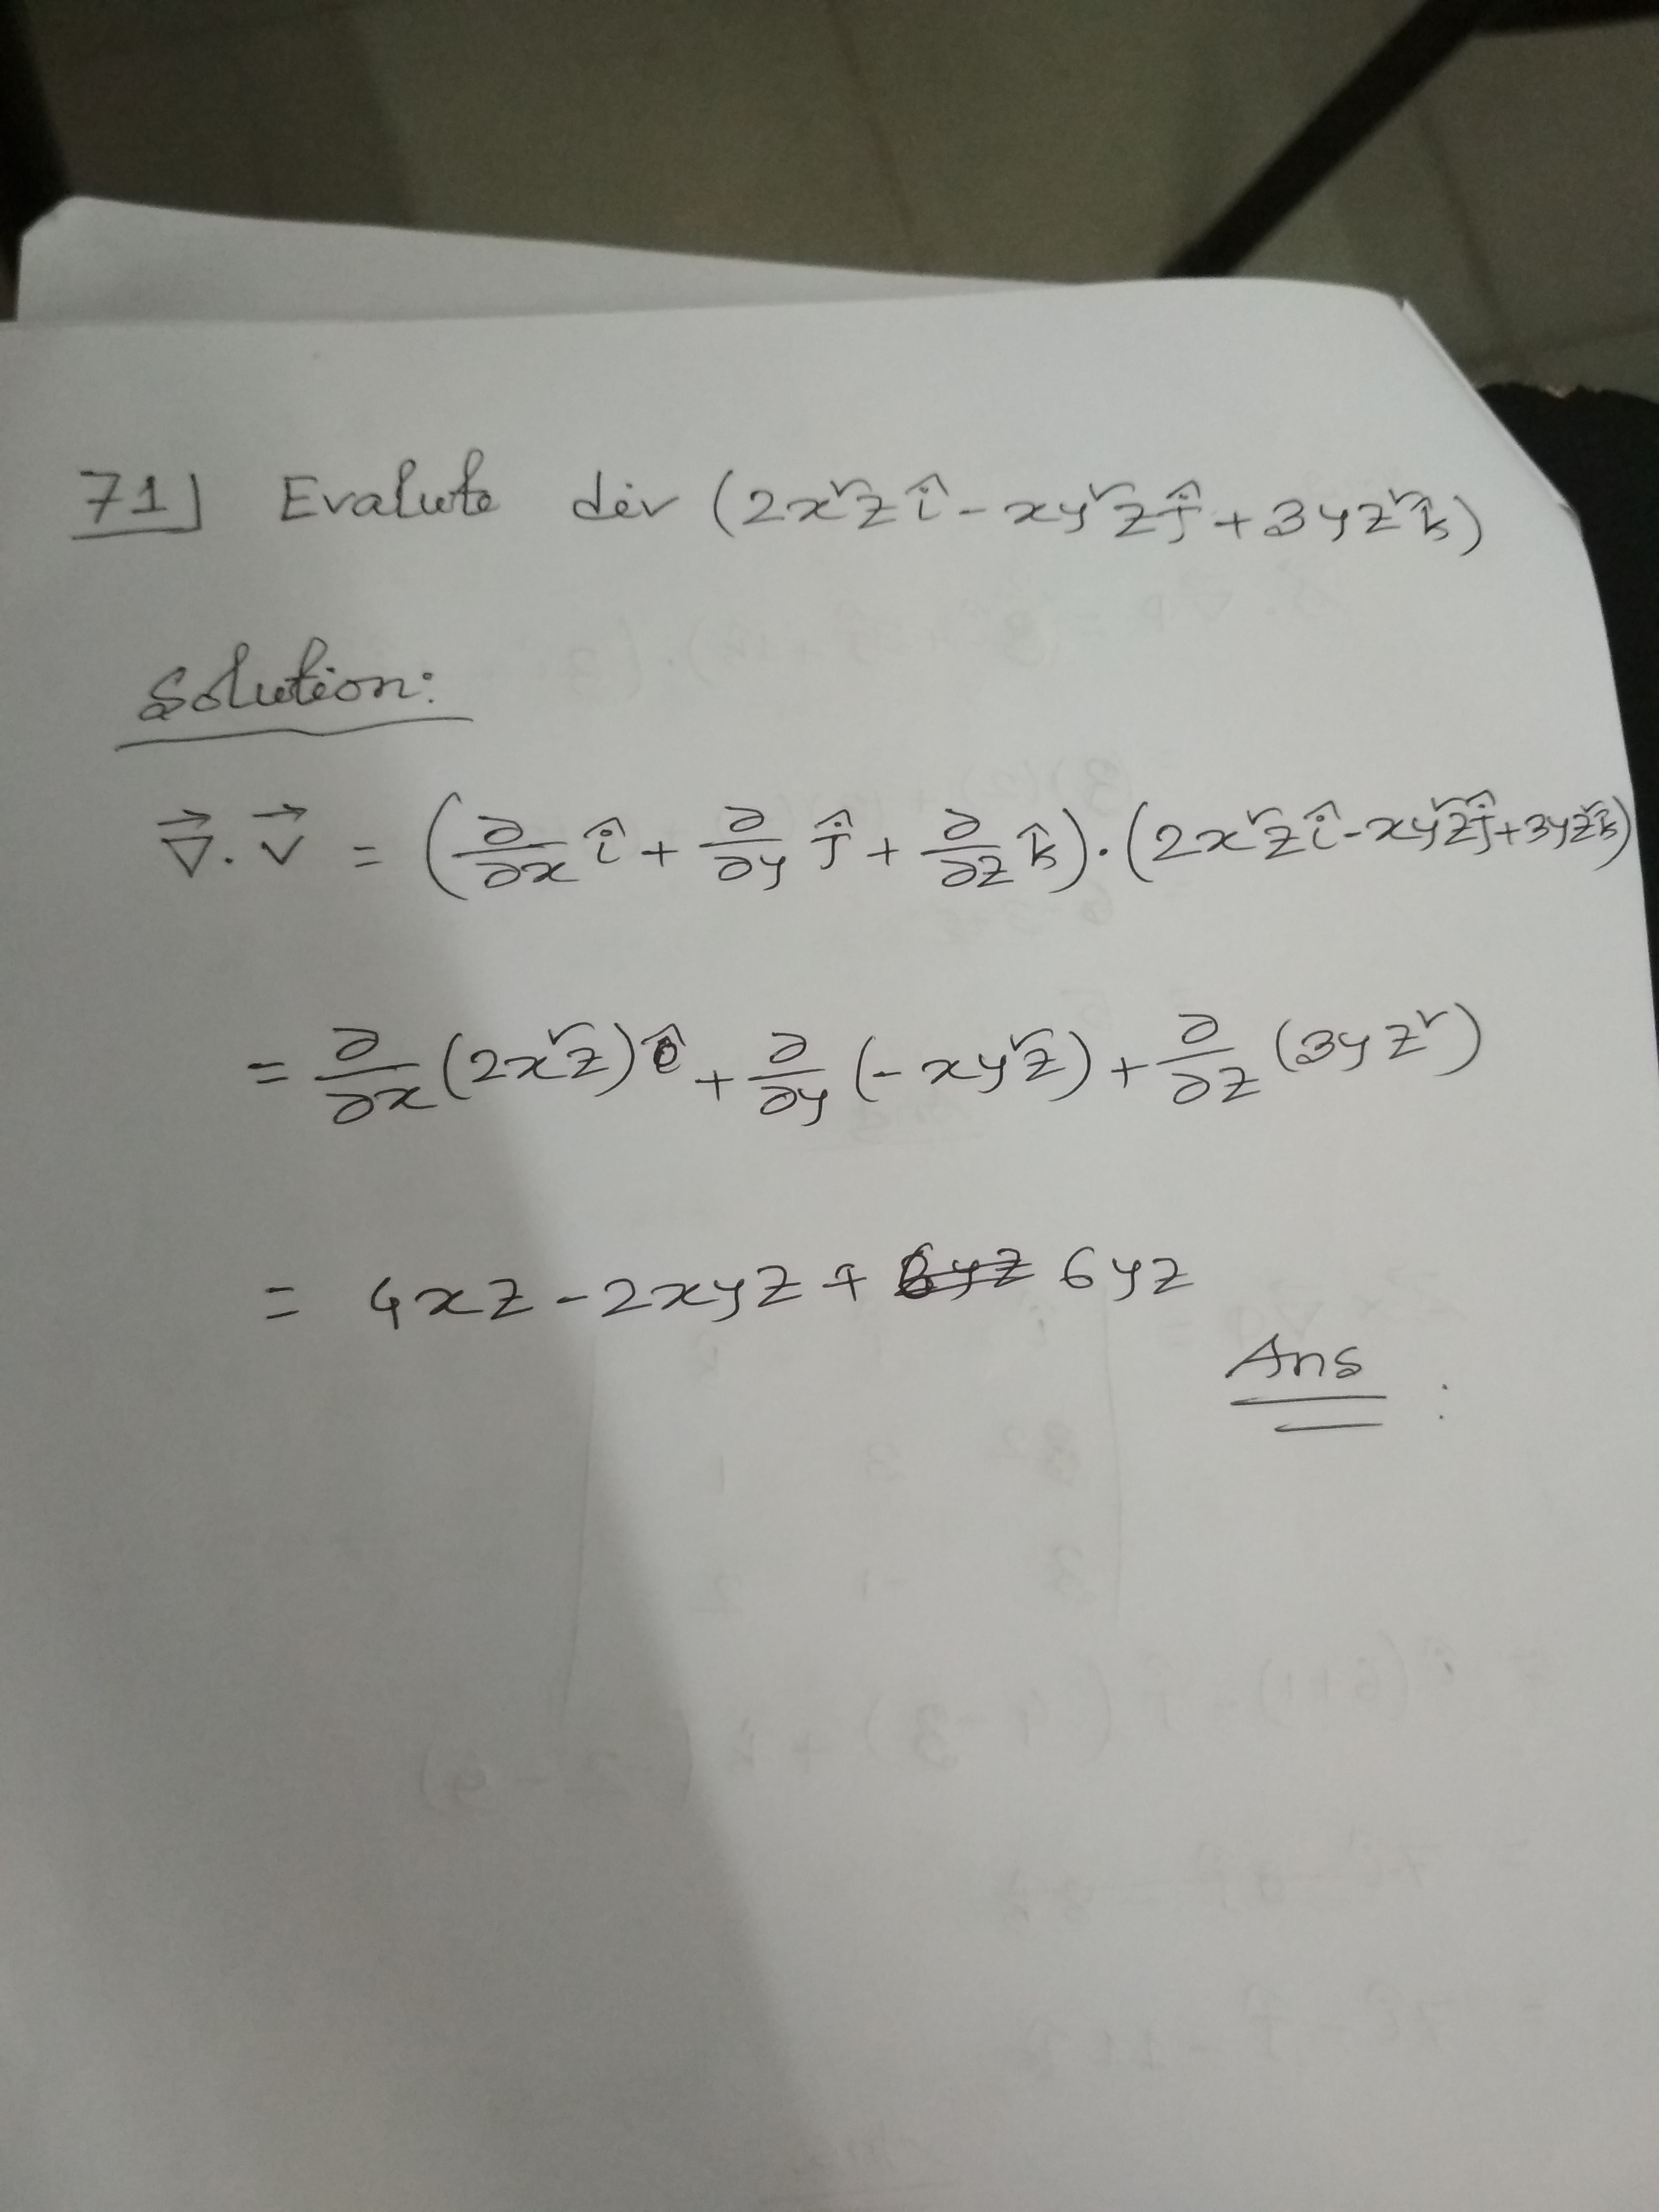 71] Evalute div (2x²z î - xy²z ĵ + 3yz² k̂)
Solution:
∇⃗ . v⃗ = (∂/∂x î + ∂/∂y ĵ + ∂/∂z k̂) . (2x²z î - xy²z ĵ + 3yz² k̂)
= ∂/∂x (2x²z) + ∂/∂y (- xy²z) + ∂/∂z (3yz²)
= 4xz - 2xyz + 6yz
Ans :